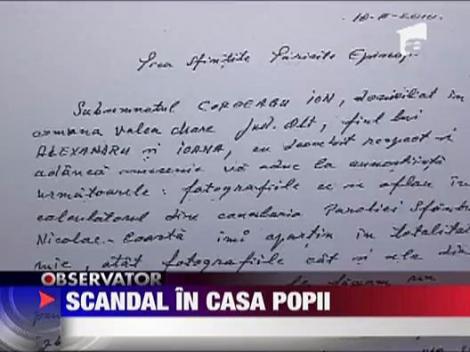 10-II-2010
Prea Sfințite Părinte Episcop,
Subsemnatul CORDEANU ION, domiciliat în
comuna Valea Mare Jud. Olt, fiul lui
ALEXANDRU și IOANA, cu deosebit respect și
adâncă vă aduc la cunoștință
următoarele: fotografiile ce se aflau în
calculatorul din cancelaria Parohiei Sfântu
Nicolae - Coastă îmi aparțin în totalitate
mie, atât fotografiile cât și ale din
OBSERVATOR
SCANDAL ÎN CASA POPII